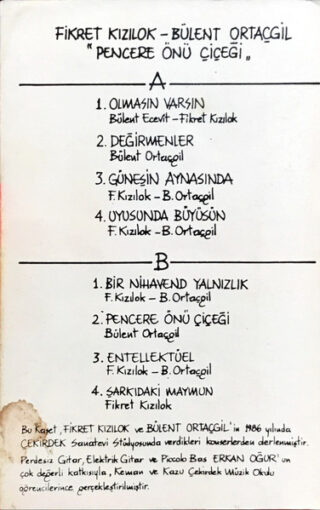 FİKRET KIZILOK – BÜLENT ORTAÇGİL
"PENCERE ÖNÜ ÇİÇEĞİ"
A
1. OLMASIN VARSIN
Bülent Ecevit – Fikret Kızılok
2. DEĞİRMENLER
Bülent Ortaçgil
3. GÜNEŞİN AYNASINDA
F. Kızılok – B. Ortaçgil
4. UYUSUNDA BÜYÜSÜN
F. Kızılok – B. Ortaçgil
B
1. BİR NİHAVEND YALNIZLIK
F. Kızılok – B. Ortaçgil
2. PENCERE ÖNÜ ÇİÇEĞİ
Bülent Ortaçgil
3. ENTELLEKTÜEL
F. Kızılok – B. Ortaçgil
4. ŞARKIDAKİ MAYMUN
Fikret Kızılok
Bu Kaset, FİKRET KIZILOK ve BÜLENT ORTAÇGİL'in 1986 yılında
ÇEKİRDEK Sanatevi Stüdyosunda verdikleri konserlerden derlenmiştir.
Perdesiz Gitar, Elektrik Gitar ve Piccolo Bas ERKAN OĞUR'un
çok değerli katkısıyla, Keman ve Kazu Çekirdek Müzik Okulu
öğrencilerince gerçekleştirilmiştir.